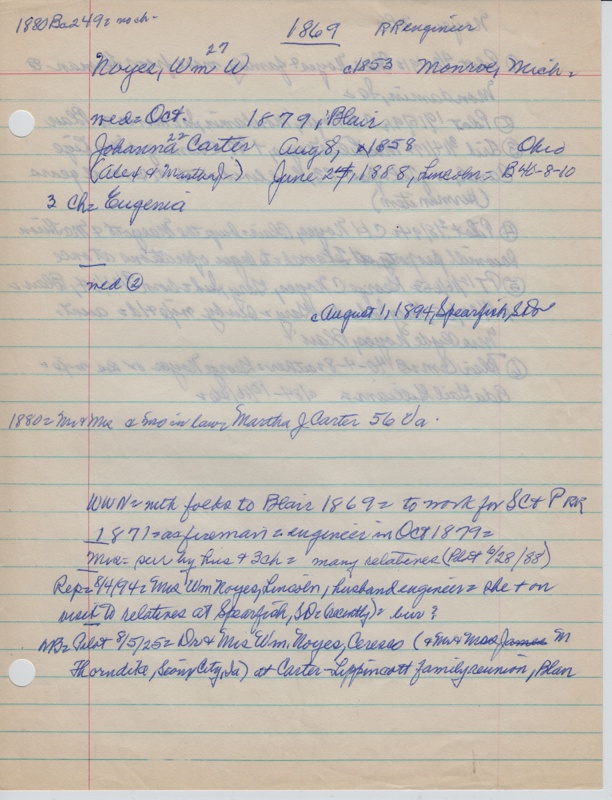 1880 Ba 249 = no ch-
1869 RR engineer
27
Noyes, Wm W c1853 Monroe, Mich =
med = Oct. 1879, Blair
22
Johanna Carter Aug 8, 1858 Ohio
(Alex & Martha J-) June 24, 1888, Lincoln = B46-8-10
3 ch = Eugenia
med ②
c August 1, 1894, Spearfish, S.D.
1880 = Mr & Mrs & mo in law = Martha J Carter 56 Va.
WWN = with folks to Blair 1869 = to work for SC & P RR
1871 = as fireman = engineer in Oct 1879 =
Mrs = sur by hus & 3 ch = many relatives (Pilot 6/28/88)
Rep = 8/4/94 = Mrs Wm Noyes, Lincoln, husband engineer = she & on
visit to relatives at Spearfish, S.D. (recently) = bur ?
NB = Pilot 8/5/25 = Dr & Mrs Wm. Noyes, Ceresco (& Mr & Mrs James M
Thorndike, Sioux City, Ia) at Carter-Lippincott family reunion, Blair